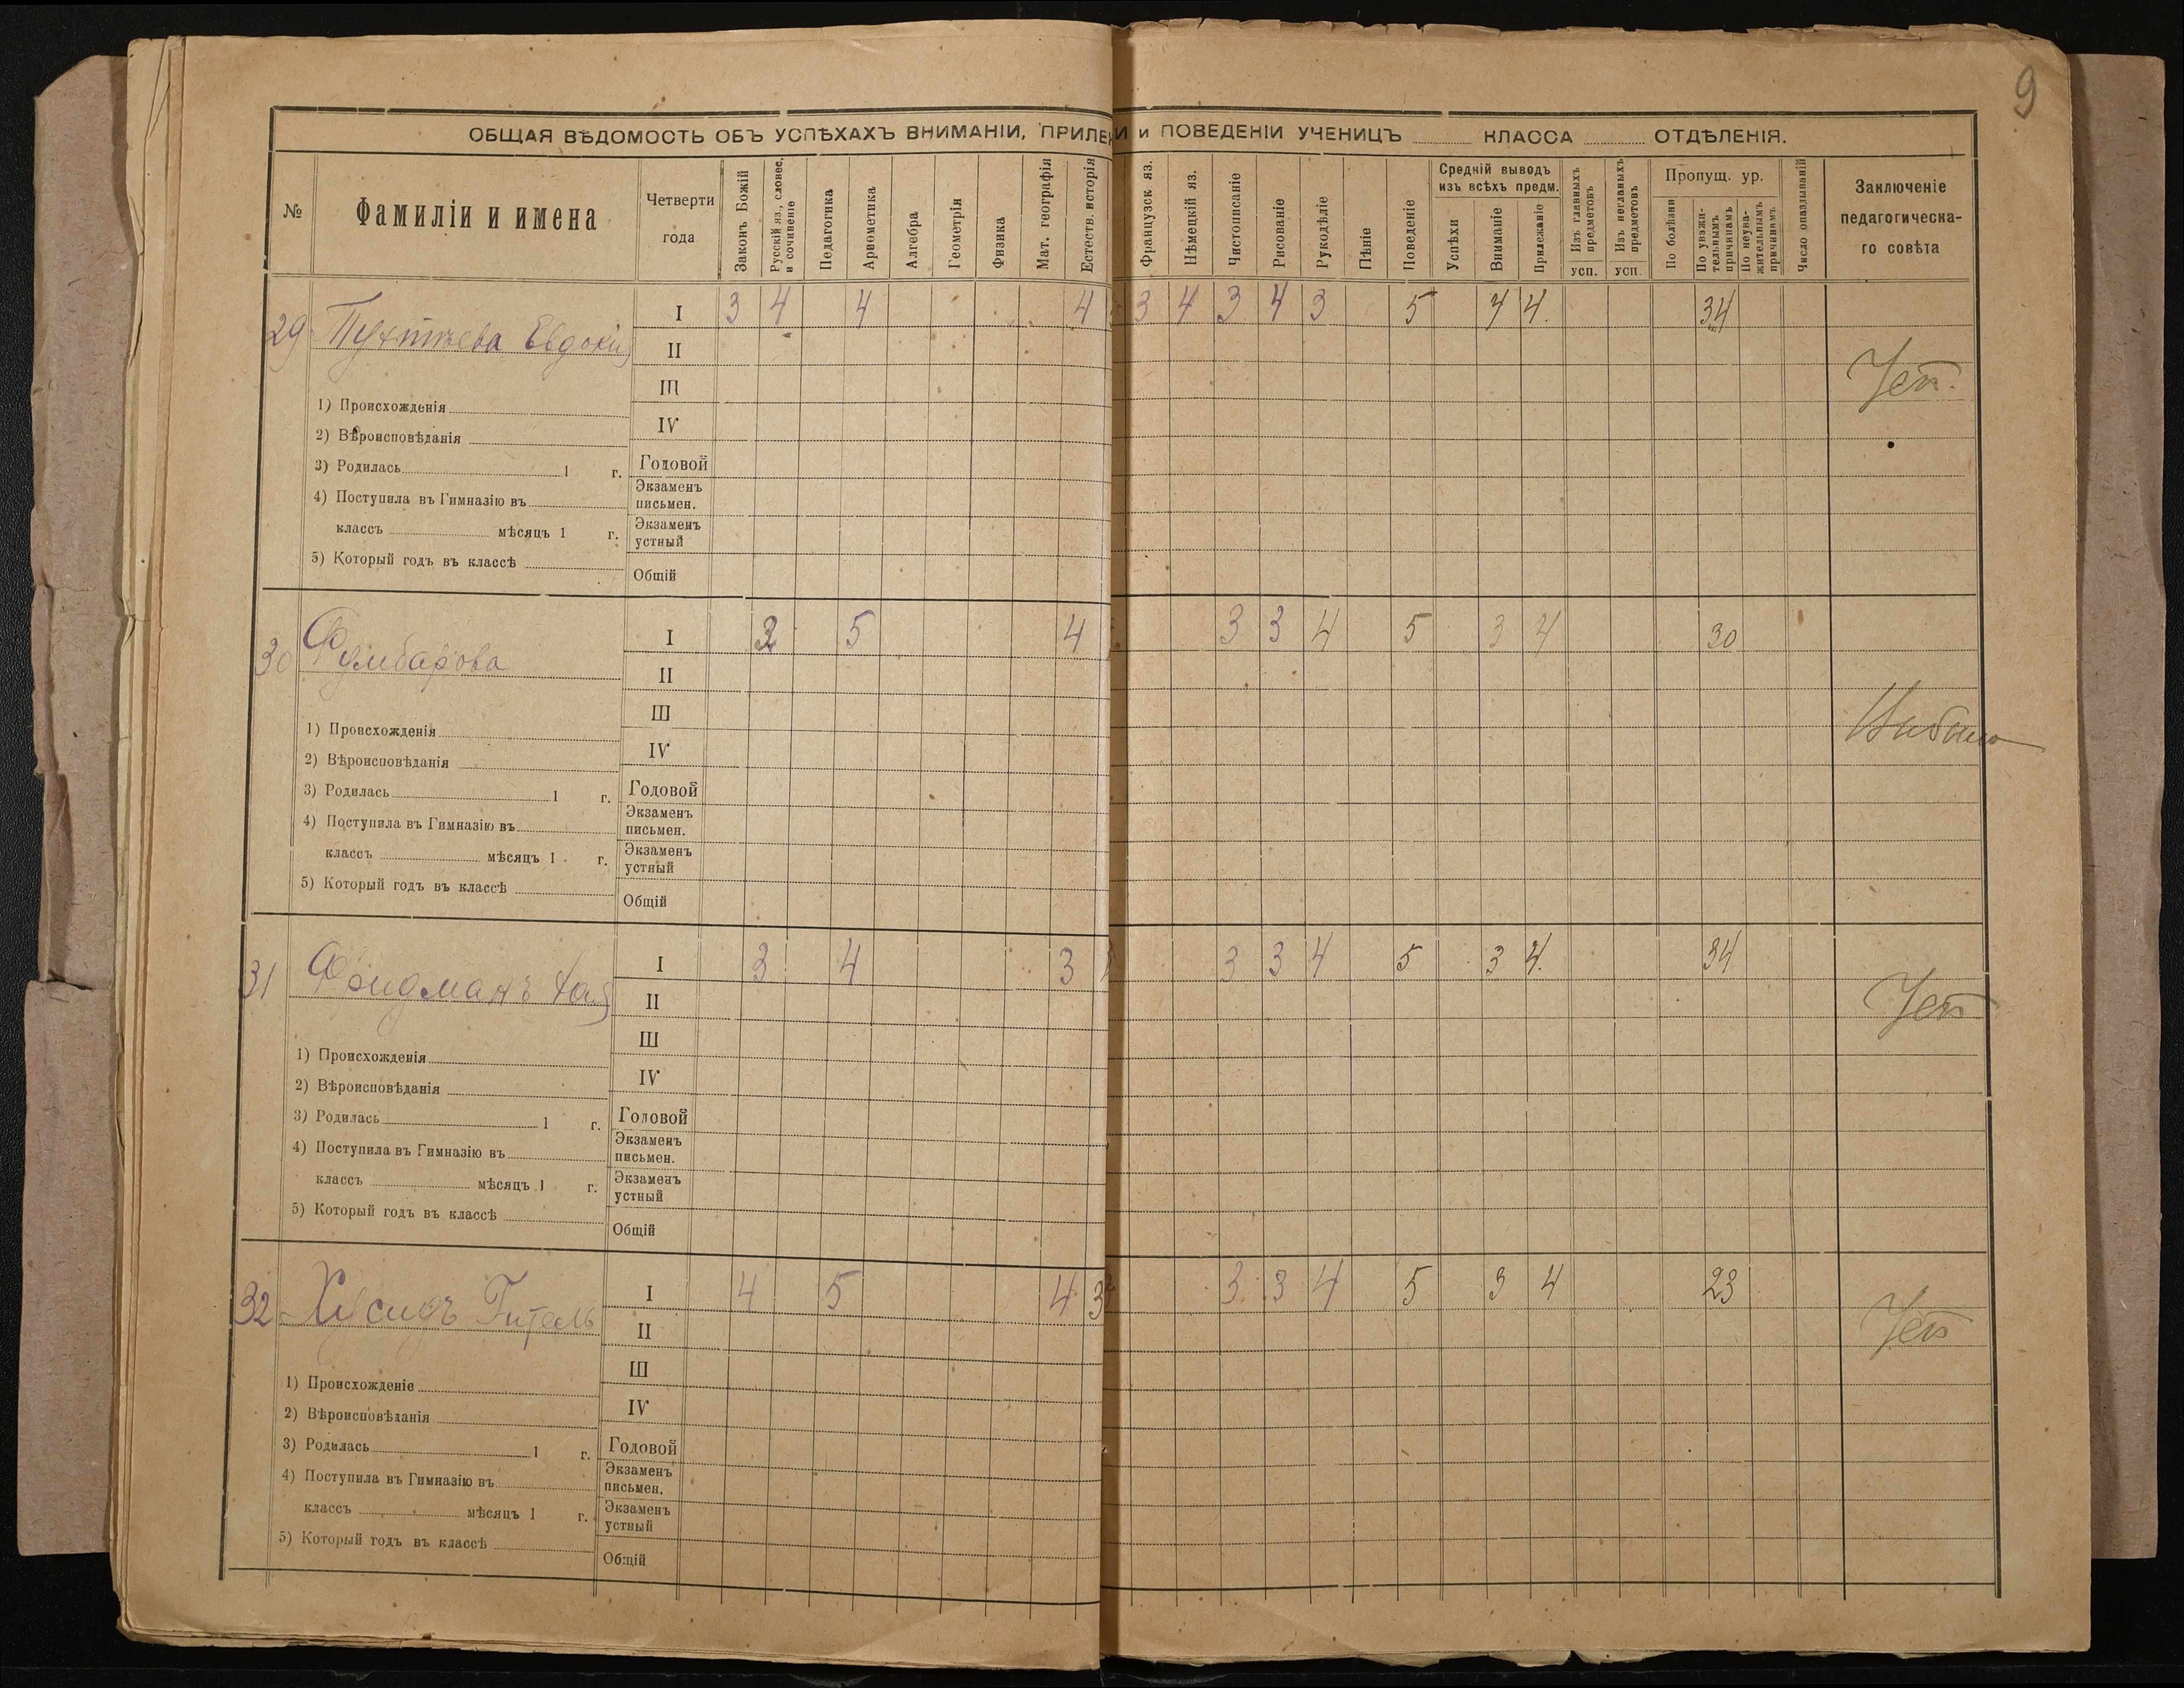 9
ОБЩАЯ ВѢДОМОСТЬ ОБЪ УСПѢХАХЪ ВНИМАНІИ, ПРИЛЕ И и ПОВЕДЕНІИ УЧЕНИЦЪ КЛАССА ОТДѢЛЕНІЯ.
№ Фамиліи и имена Четверти года Законъ Божій Русскій яз., словес. и сочиненіе Педагогика Арнометика Алгебра Геометрія Физика Мат. географія Естеств. исторія Французск яз. Нѣмецкій яз. Чистописаніе Рисованіе Рукодѣліе Пѣніе Поведеніе Средній выводъ изъ всѣхъ предм. Успѣхи Вниманіе Прилежаніе Изъ главныхъ предметовъ усп. Изъ неглавныхъ предметовъ усп. Пропущ. ур. По болѣзни По уважи-тельнымъ причинамъ По неува-жительнымъ причинамъ Число опазлываній Заключеніе педагогическа-го совѣта
29 Евдокія I 3 4 4 4 3 4 3 4 3 5 4 4. 34
II
III
1) Происхожденія
IV
2) Вѣроисповѣданія
3) Родилась 1 г. Годовой
4) Поступила въ Гимназію въ Экзаменъ письмен.
классъ мѣсяцъ 1 г. Экзаменъ устный
5) Который годъ въ классѣ Общій
30 I 5 4 3 3 4 5 3 4 30
II
III
1) Происхожденія
IV Выбыла
2) Вѣроисповѣданія
3) Родилась 1 г. Годовой
4) Поступила въ Гимназію въ Экзаменъ письмен.
классъ мѣсяцъ 1 г. Экзаменъ устный
5) Который годъ въ классѣ Общій
31 Фридманъ I 3 4 3 3 3 4 5 3 4. 34
II
III
1) Происхожденія
IV
2) Вѣроисповѣданія
3) Родилась 1 г. Головой
4) Поступила въ Гимназію въ Экзаменъ письмен.
классъ мѣсяцъ 1 г. Экзаменъ устный
5) Который годъ въ классѣ Общій
32 Хусидъ Гитель I 4 5 4 3 3 3 4 5 3 4 23
II
III
1) Происхожденіе
IV
2) Вѣроисповѣданія
3) Родилась 1 г. Годовой
4) Поступила въ Гимназію въ Экзаменъ письмен.
классъ мѣсяцъ 1 г. Экзаменъ устный
5) Который годъ въ классѣ Общій